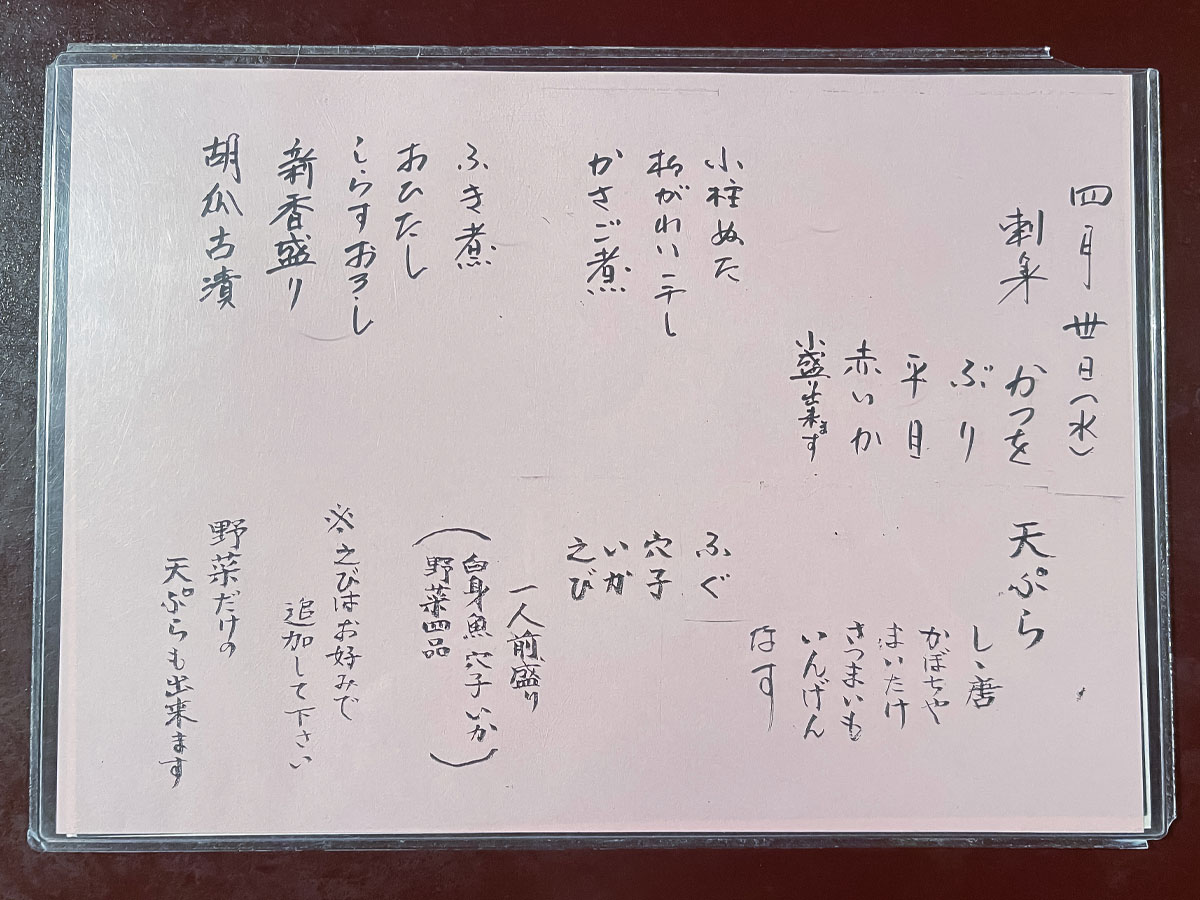 四月 丗日(水)
刺身
かつを
ぶり
平目
赤いか
小盛り出来ます
小柱ぬた
柳がれい干し
かさご煮
ふき煮
おひたし
しらすおろし
新香盛り
胡瓜古漬
天ぷら
しゝ唐
かぼちゃ
まいたけ
さつまいも
いんげん
なす
ふぐ
穴子
いか
えび
一人前盛り
(白身魚 穴子 いか
野菜四品)
※えびはお好みで
追加して下さい
野菜だけの
天ぷらも出来ます